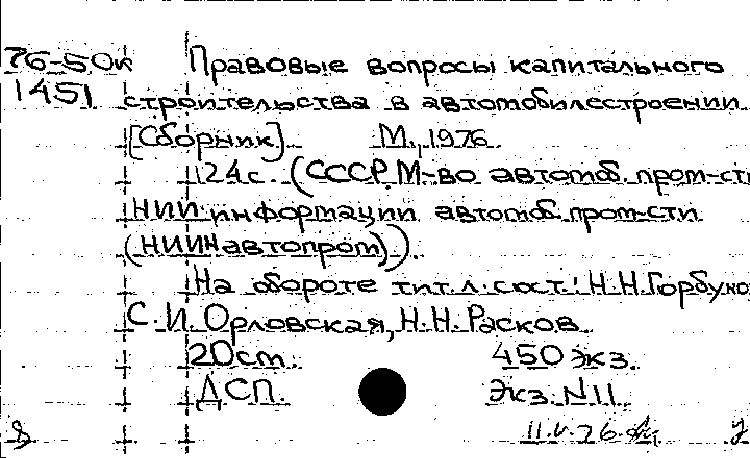 76-50к Правовые вопросы капитального
1451 строительства в автомобилестроении
[Сборник]. М., 1976
124с. (СССР. М-во автомоб. пром-сти
НИИ информации автомоб. пром-сти
(НИИНавтопром)).
На обороте тит. л. сост.: Н.Н. Горбуно
С.И. Орловская, Н.Н. Расков
20cm. 450 экз.
ДСП. Экз. N11
11.V.76